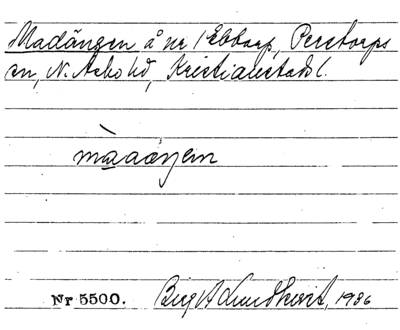 Madängen å nr 1 Ebbarp, Perstorps
sn, N. Åsbo hd, Kristianstads l.
màaäŋen
Nr 5500. Birgit Lundkvist, 1936